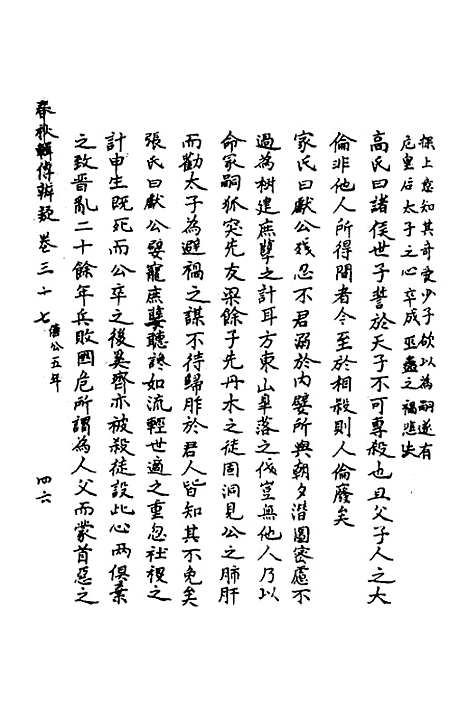 探上意知其奇愛少子欲以為嗣遂有
危皇后太子之心卒成巫蠱之禍悲夫
高氏曰諸侯世子誓於天子不可專殺也且父子人之大
倫非他人所得間者今至於相殺則人倫廢矣
家氏曰獻公殘忍不君溺於內嬖所與朝夕潛圖密慮不
過為樹建庶孽之計耳方東山臯落之伐豈無他人乃以
命冢嗣狐突先友梁餘子先丹木之徒固洞見公之肺肝
而勸太子為避禍之謀不待歸胙於君人皆知其不免矣
張氏曰獻公嬖寵庶孽聽讒如流輕世適之重忽社稷之
計申生既死而公卒之後奚齊亦被殺徒設此心兩俱棄
之致晉亂二十餘年兵敗國危所謂為人父而蒙首惡之
春秋輯傳辨疑 卷三十七 僖公五年 四六